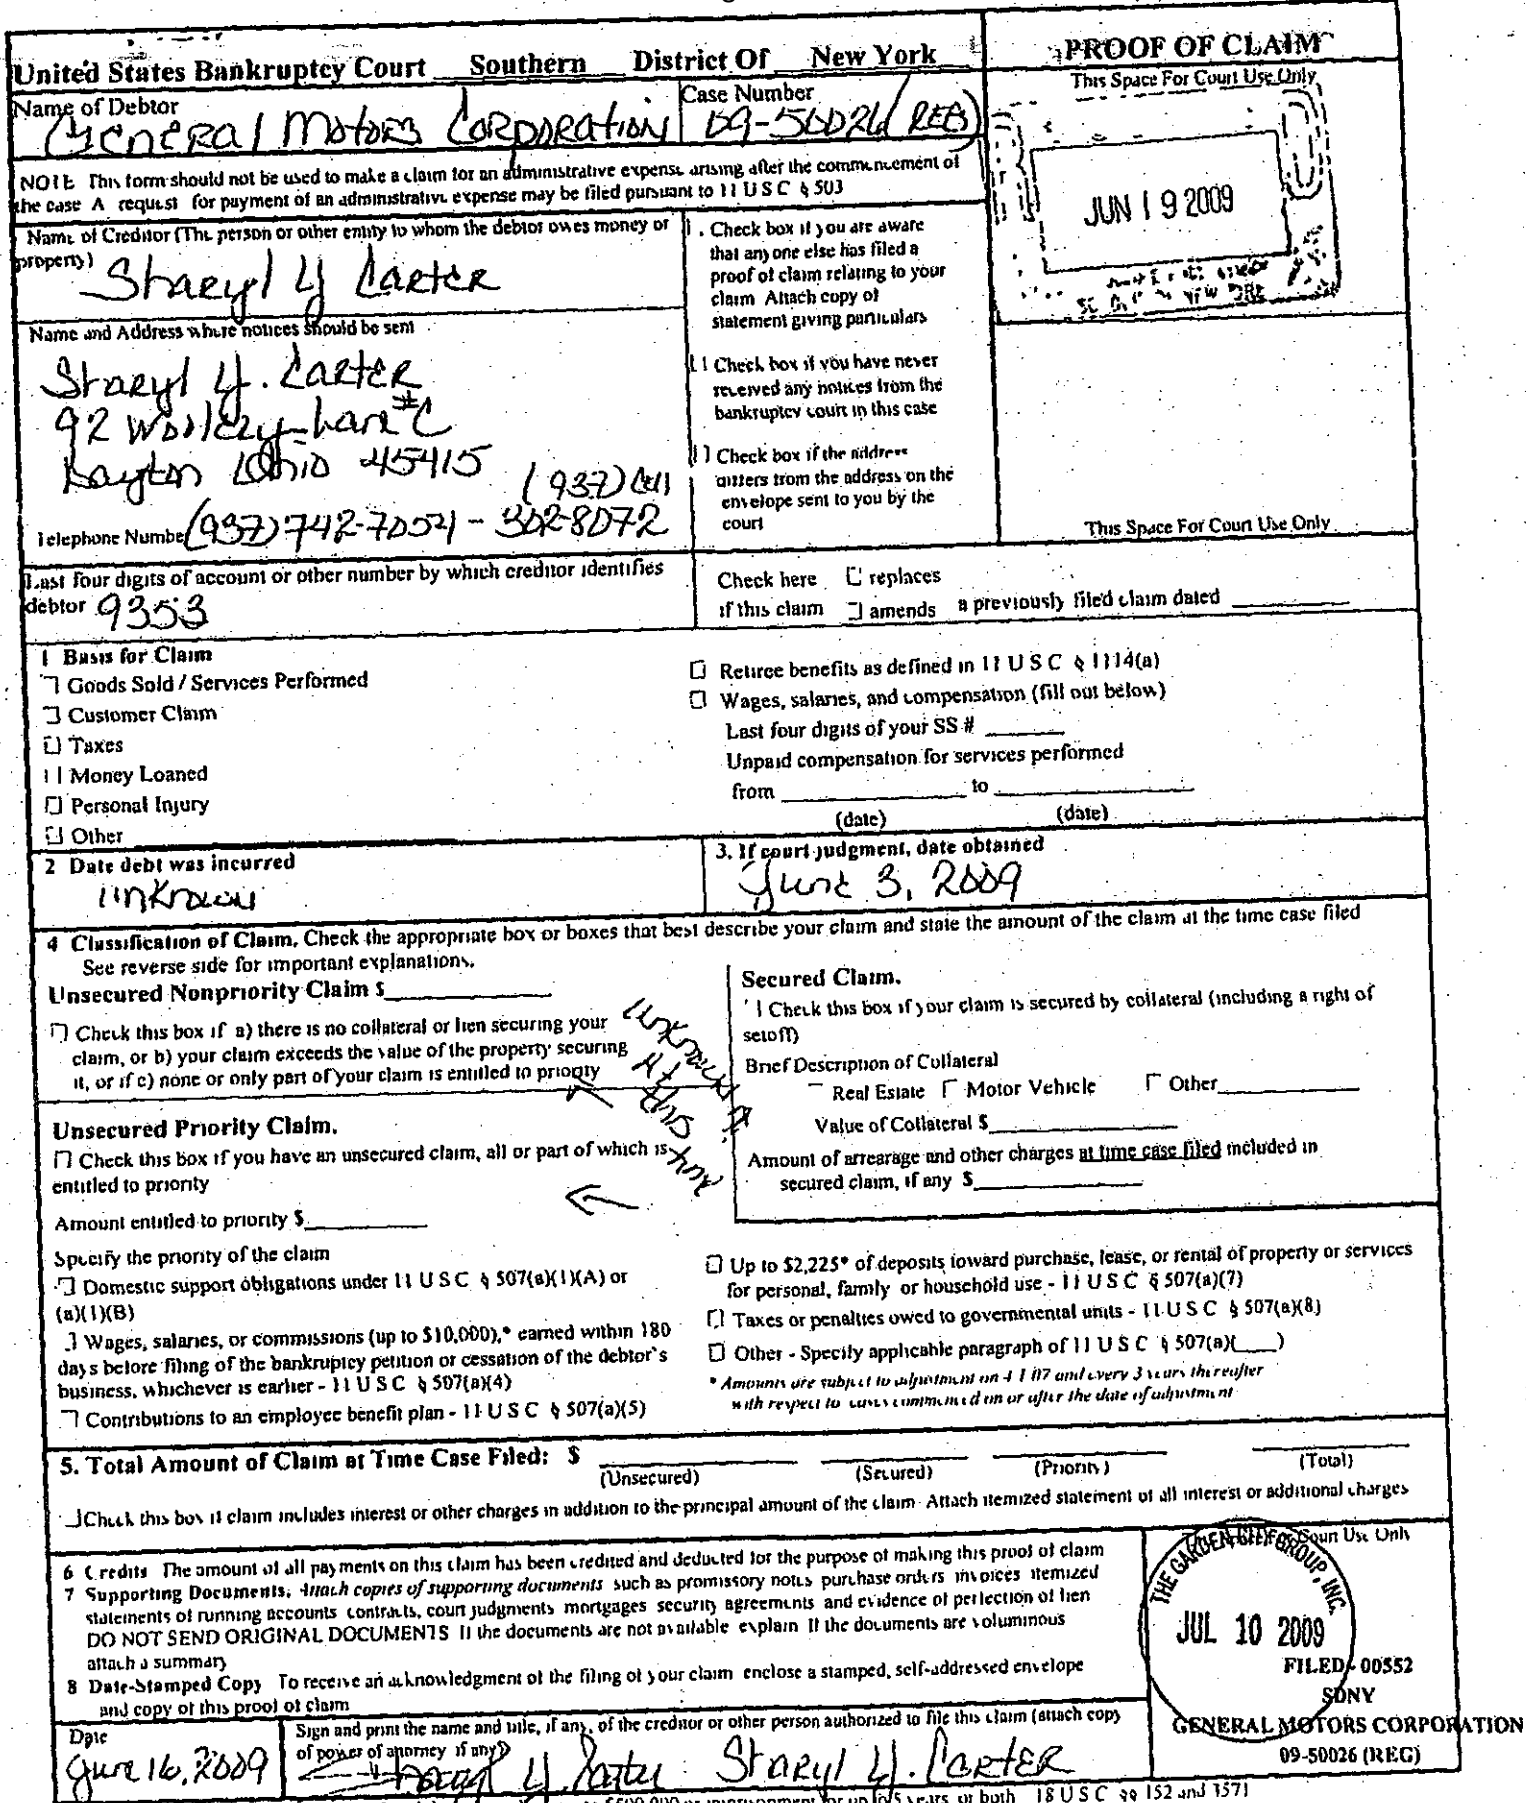 United States Bankruptcy Court Southern District Of New York
PROOF OF CLAIM
This Space For Court Use Only
Name of Debtor
General Motors Corporation
Case Number
09-50026 (REG)
JUN 19 2009
NOTE This form should not be used to make a claim for an administrative expense arising after the commencement of
the case A request for payment of an administrative expense may be filed pursuant to 11 U S C § 503
Name of Creditor (The person or other entity to whom the debtor owes money or
property)
Staryl Y Carter
Check box if you are aware
that anyone else has filed a
proof of claim relating to your
claim Attach copy of
statement giving particulars
Name and Address where notices should be sent
Staryl Y. Carter
92 Lane #C
Dayton Ohio 45415
(937) Cell
Telephone Number (937) 742-7054 - 302-8072
Check box if you have never
received any notices from the
bankruptcy court in this case
Check box if the address
differs from the address on the
envelope sent to you by the
court
This Space For Court Use Only
Last four digits of account or other number by which creditor identifies
debtor 9353
Check here replaces
if this claim amends a previously filed claim dated
1 Basis for Claim
Goods Sold / Services Performed
Customer Claim
Taxes
Money Loaned
Personal Injury
Other
Retiree benefits as defined in 11 U S C § 1114(a)
Wages, salaries, and compensation (fill out below)
Last four digits of your SS #
Unpaid compensation for services performed
from to
(date) (date)
2 Date debt was incurred
unknown
3. If court judgment, date obtained
June 3, 2009
4 Classification of Claim. Check the appropriate box or boxes that best describe your claim and state the amount of the claim at the time case filed
See reverse side for important explanations.
Unsecured Nonpriority Claim $
Check this box if a) there is no collateral or lien securing your
claim, or b) your claim exceeds the value of the property securing
it, or if c) none or only part of your claim is entitled to priority
unknown
At this time
Unsecured Priority Claim.
Check this box if you have an unsecured claim, all or part of which is
entitled to priority
Amount entitled to priority $
Specify the priority of the claim
Domestic support obligations under 11 U S C § 507(a)(1)(A) or
(a)(1)(B)
Wages, salaries, or commissions (up to $10,000),* earned within 180
days before filing of the bankruptcy petition or cessation of the debtor's
business, whichever is earlier - 11 U S C § 507(a)(4)
Contributions to an employee benefit plan - 11 U S C § 507(a)(5)
Secured Claim.
Check this box if your claim is secured by collateral (including a right of
setoff)
Brief Description of Collateral
Real Estate Motor Vehicle Other
Value of Collateral $
Amount of arrearage and other charges at time case filed included in
secured claim, if any $
Up to $2,225* of deposits toward purchase, lease, or rental of property or services
for personal, family or household use - 11 U S C § 507(a)(7)
Taxes or penalties owed to governmental units - 11 U S C § 507(a)(8)
Other - Specify applicable paragraph of 11 U S C § 507(a)(___)
* Amounts are subject to adjustment on 4 1 07 and every 3 years thereafter
with respect to cases commenced on or after the date of adjustment
5. Total Amount of Claim at Time Case Filed: $
(Unsecured) (Secured) (Priority) (Total)
Check this box if claim includes interest or other charges in addition to the principal amount of the claim Attach itemized statement of all interest or additional charges
6 Credits The amount of all payments on this claim has been credited and deducted for the purpose of making this proof of claim
7 Supporting Documents. Attach copies of supporting documents such as promissory notes purchase orders invoices itemized
statements of running accounts contracts, court judgments mortgages security agreements and evidence of perfection of lien
DO NOT SEND ORIGINAL DOCUMENTS If the documents are not available explain If the documents are voluminous
attach a summary
8 Date-Stamped Copy To receive an acknowledgment of the filing of your claim enclose a stamped, self-addressed envelope
and copy of this proof of claim
For Court Use Only
THE GARDEN CITY GROUP, INC.
JUL 10 2009
FILED - 00552
SDNY
GENERAL MOTORS CORPORATION
09-50026 (REG)
Date
June 16, 2009
Sign and print the name and title, if any, of the creditor or other person authorized to file this claim (attach copy
of power of attorney if any)
Y. Carter Staryl Y. Carter
years or both 18 U S C §§ 152 and 3571